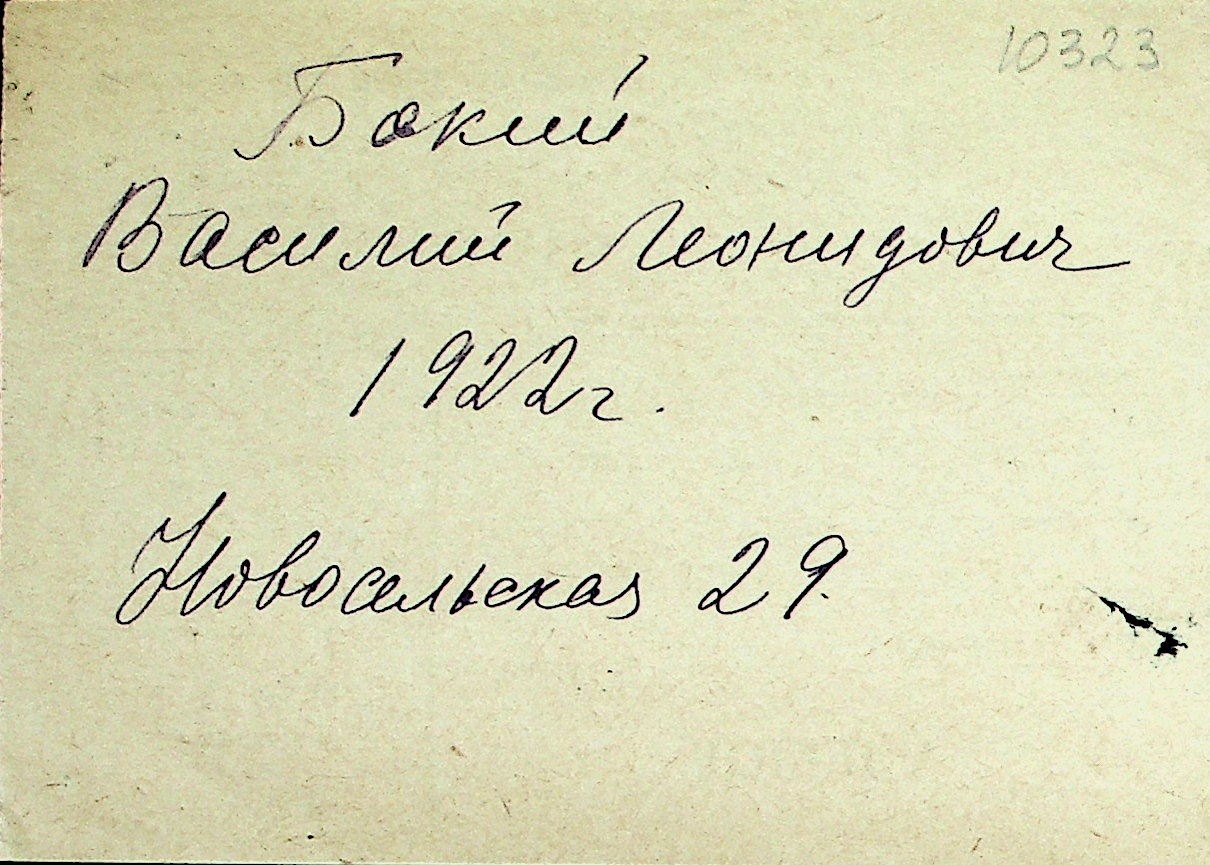 10323
Бокий
Василий Леонидович
1922 г.
Новосельская 29.